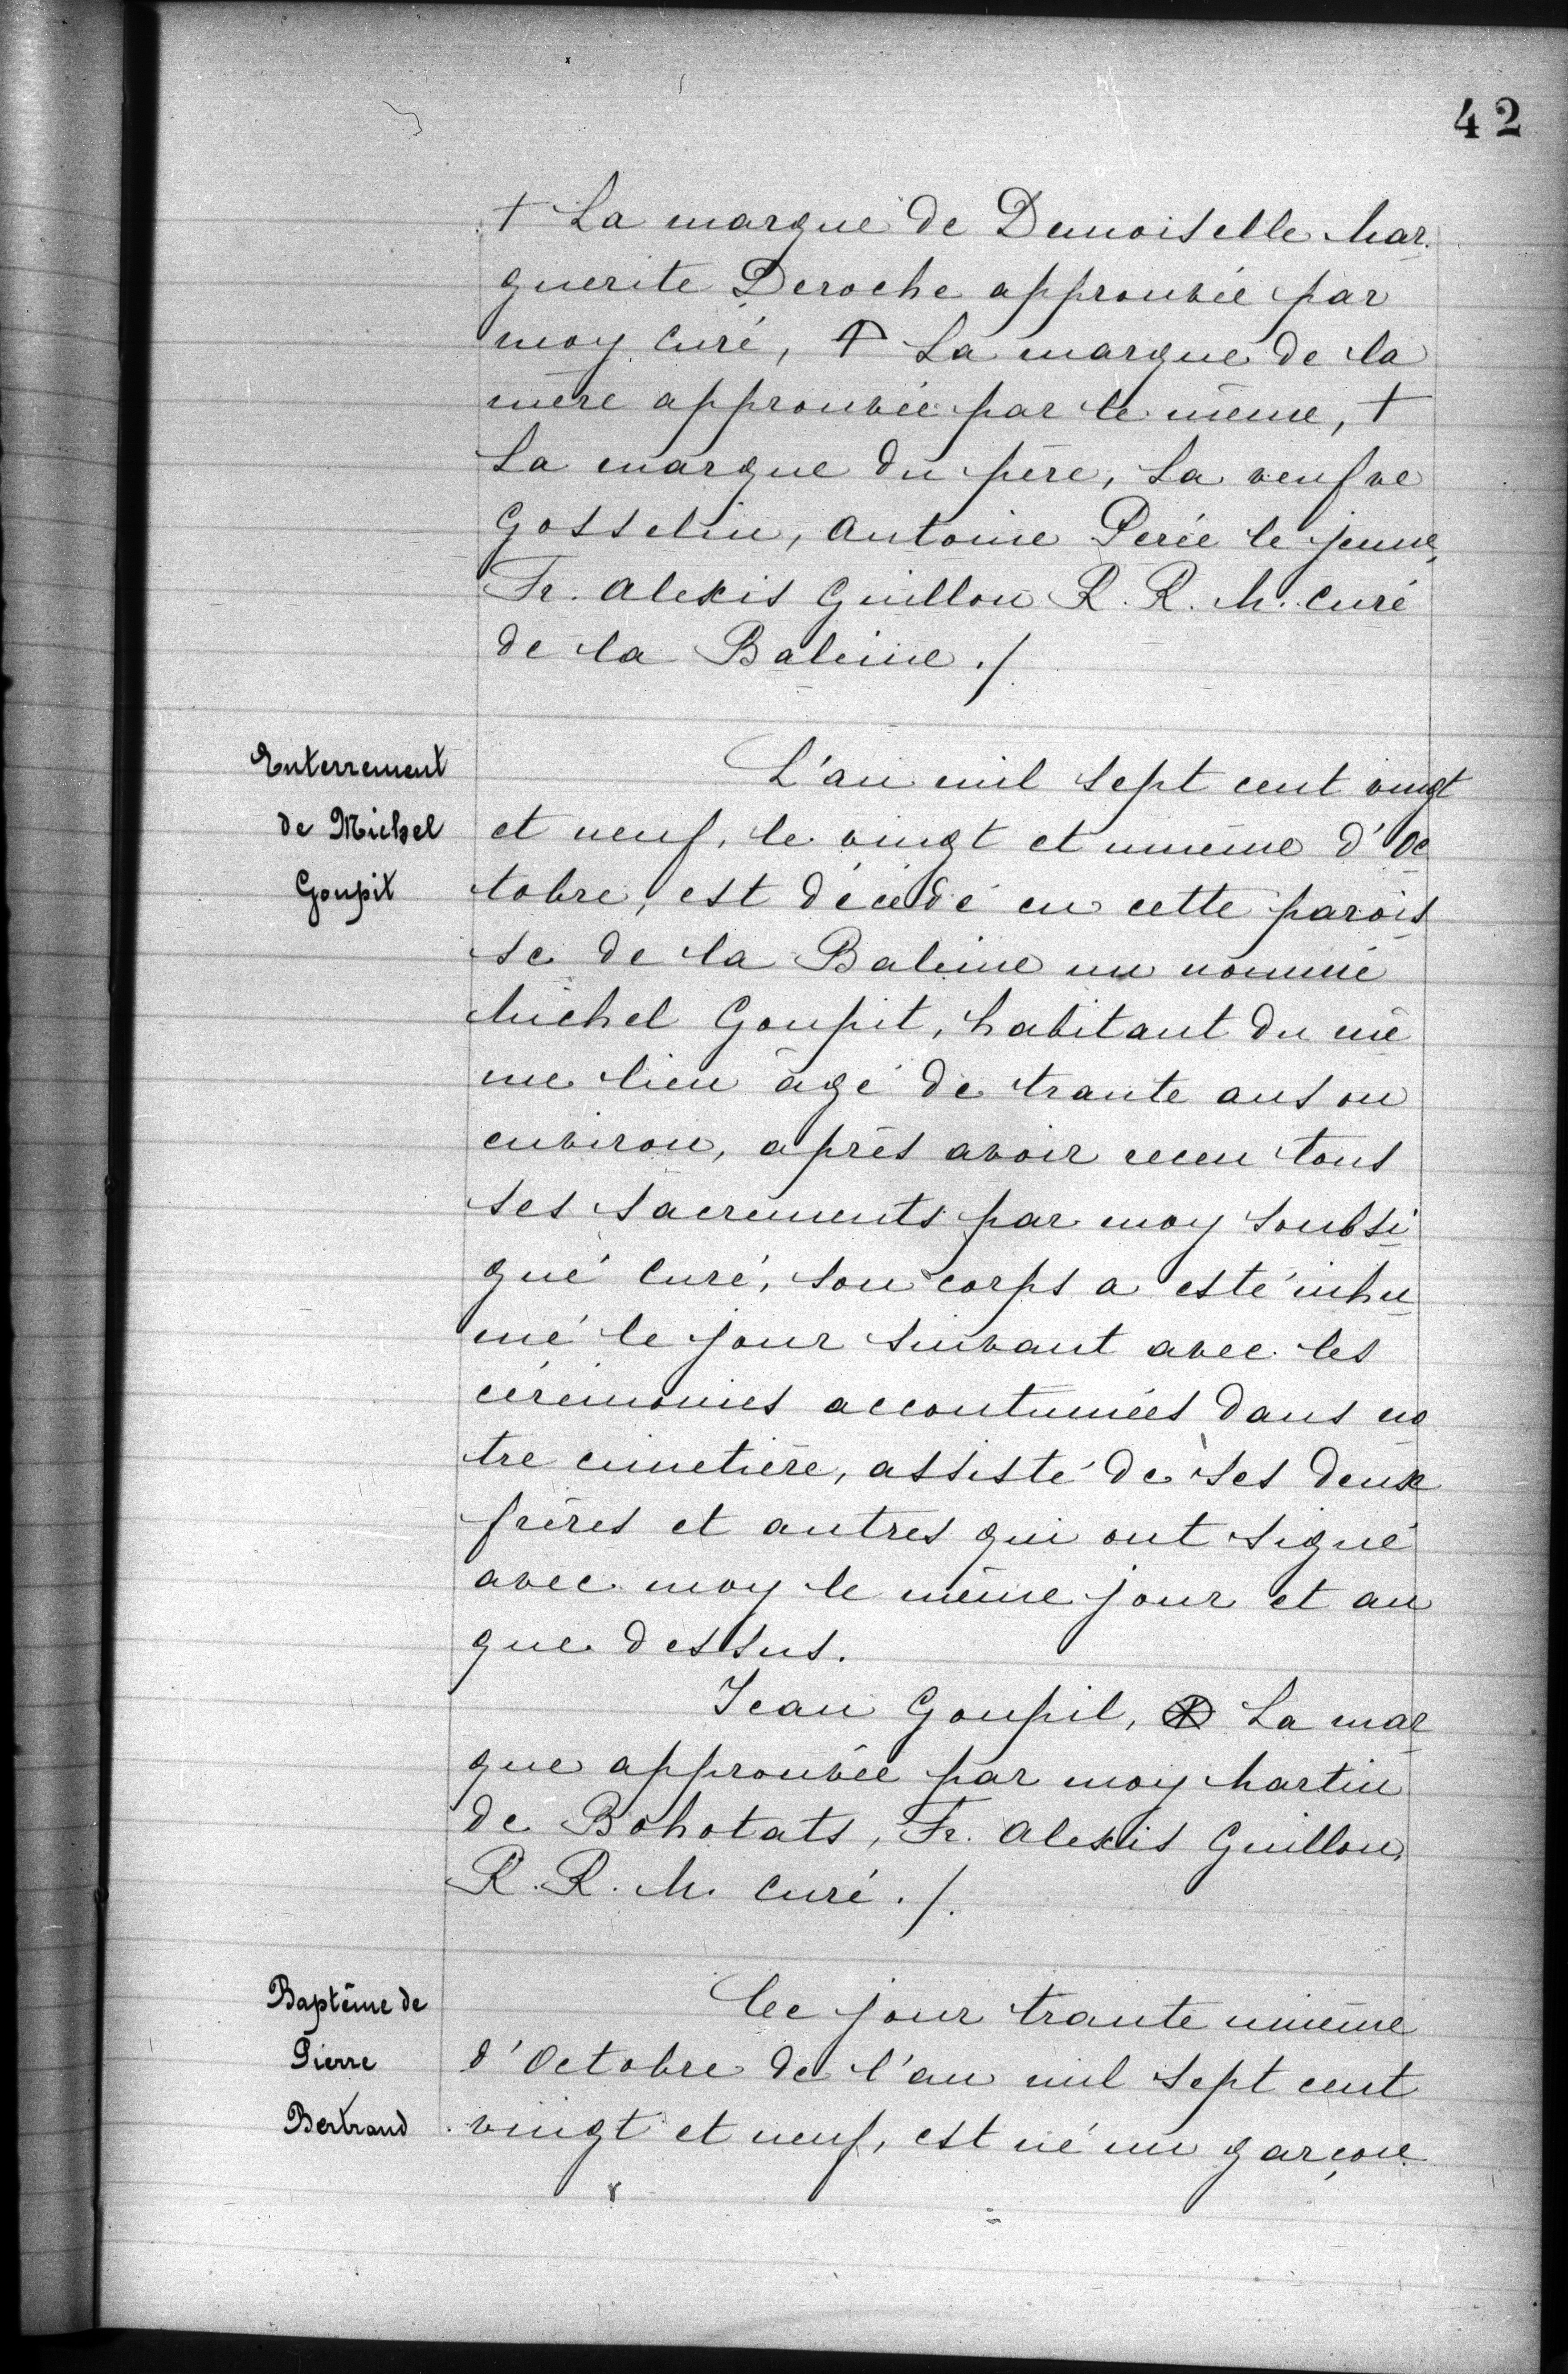 42
† La marque de Demoiselle Mar
guerite Deroche approuvée par
moy curé, † La marque de la
mère approuvée par le même, †
La marque du père, La veufve
Gosselin, Antoine Perée le jeune,
Fr. Alexis Guillou R. R. M. curé
de la Baleine ./
Enterrement
de Michel
Goupit
L'an mil sept cent vingt
et neuf, le vingt et unième d'Oc
tobre, est décédé en cette parois
se de la Baleine un nommé
Michel Goupit, habitant du mê
me lieu âgé de trante ans ou
environ, après avoir receu tous
ses sacrements par moy soubsi
gné curé, son corps a esté inhu
mé le jour suivant avec les
cérémonies accoutumées dans no
tre cimetière, assisté de ses deux
frères et autres qui ont signé
avec moy le même jour et an
que dessus.
Jean Goupil, ⊗ La mar
que approuvée par moy Martin
de Bohotats, Fr. Alexis Guillou,
R. R. M. curé ./.
Baptême de
Pierre
Bertrand
Ce jour trante unième
d'Octobre de l'an mil sept cent
vingt et neuf, est né un garçon